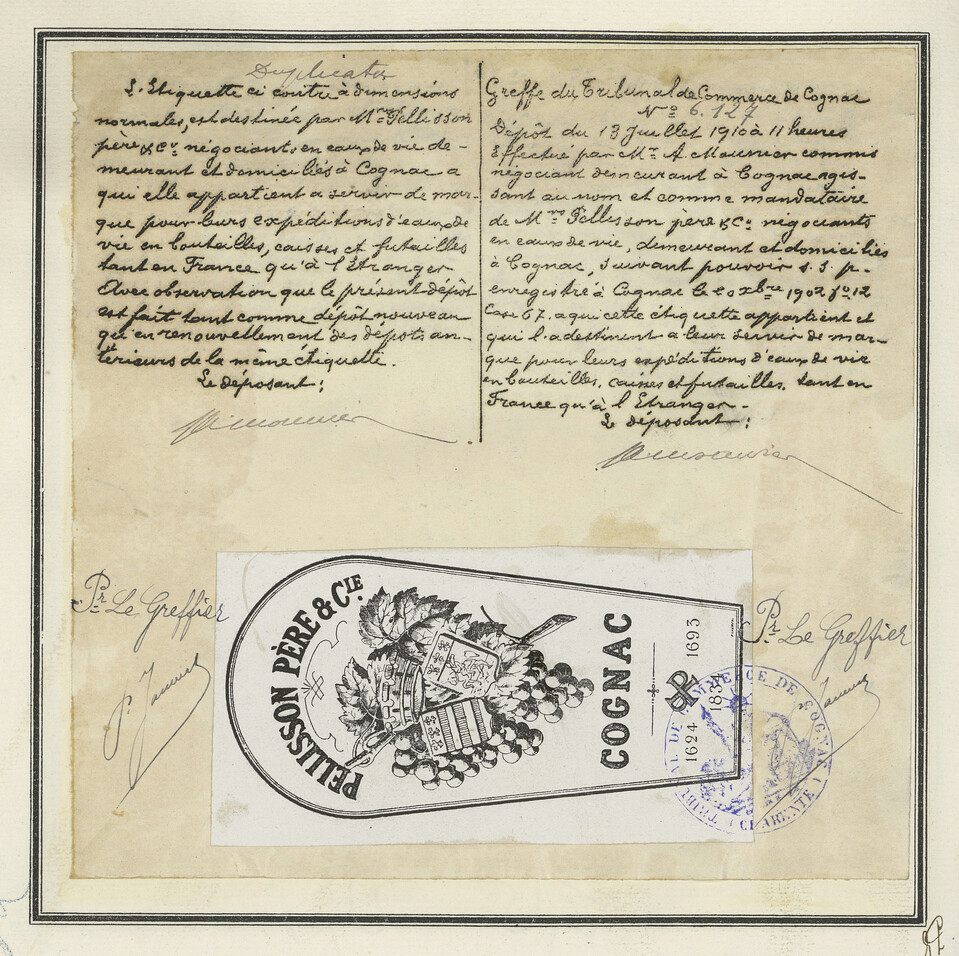 Duplicata
L'Etiquette ci contre à dimensions
normales, est destinée par Mrs Pellisson
père & Co négociants en eaux de vie de-
meurant et domiciliés à Cognac a
qui elle appartient a servir de mar-
que pour leurs expéditions d'eaux de
vie en bouteilles, caisses et futailles
tant en France qu'à l'Etranger
Avec observation que le présent dépôt
est fait tant comme dépôt nouveau
qu'en renouvellement des dépôts an-
térieurs de la même étiquette.
Le déposant :
Greffe du Tribunal de Commerce de Cognac
No 6.127
Dépôt du 13 Juillet 1910 à 11 heures
Effectué par Mr A. Maunier commis
négociant demeurant à Cognac agis-
sant au nom et comme mandataire
de Mrs Pellisson père & Co négociants
en eaux de vie, demeurant et domiciliés
à Cognac, suivant pouvoir s. s. p.
enregistré à Cognac le 20 xbre 1902 fo 12
Case 67, a qui cette étiquette appartient et
qui l'adestinent a leur servir de mar-
que pour leurs expéditions d'eaux de vie
en bouteilles, caisses et futailles, tant en
France qu'à l'Etranger.
Le déposant :
Pr Le Greffier
Pr Le Greffier
PELLISSON PÈRE & CIE
COGNAC
1624 1693
183
TRIBUNAL DE COMMERCE DE COGNAC
(CHARENTE)